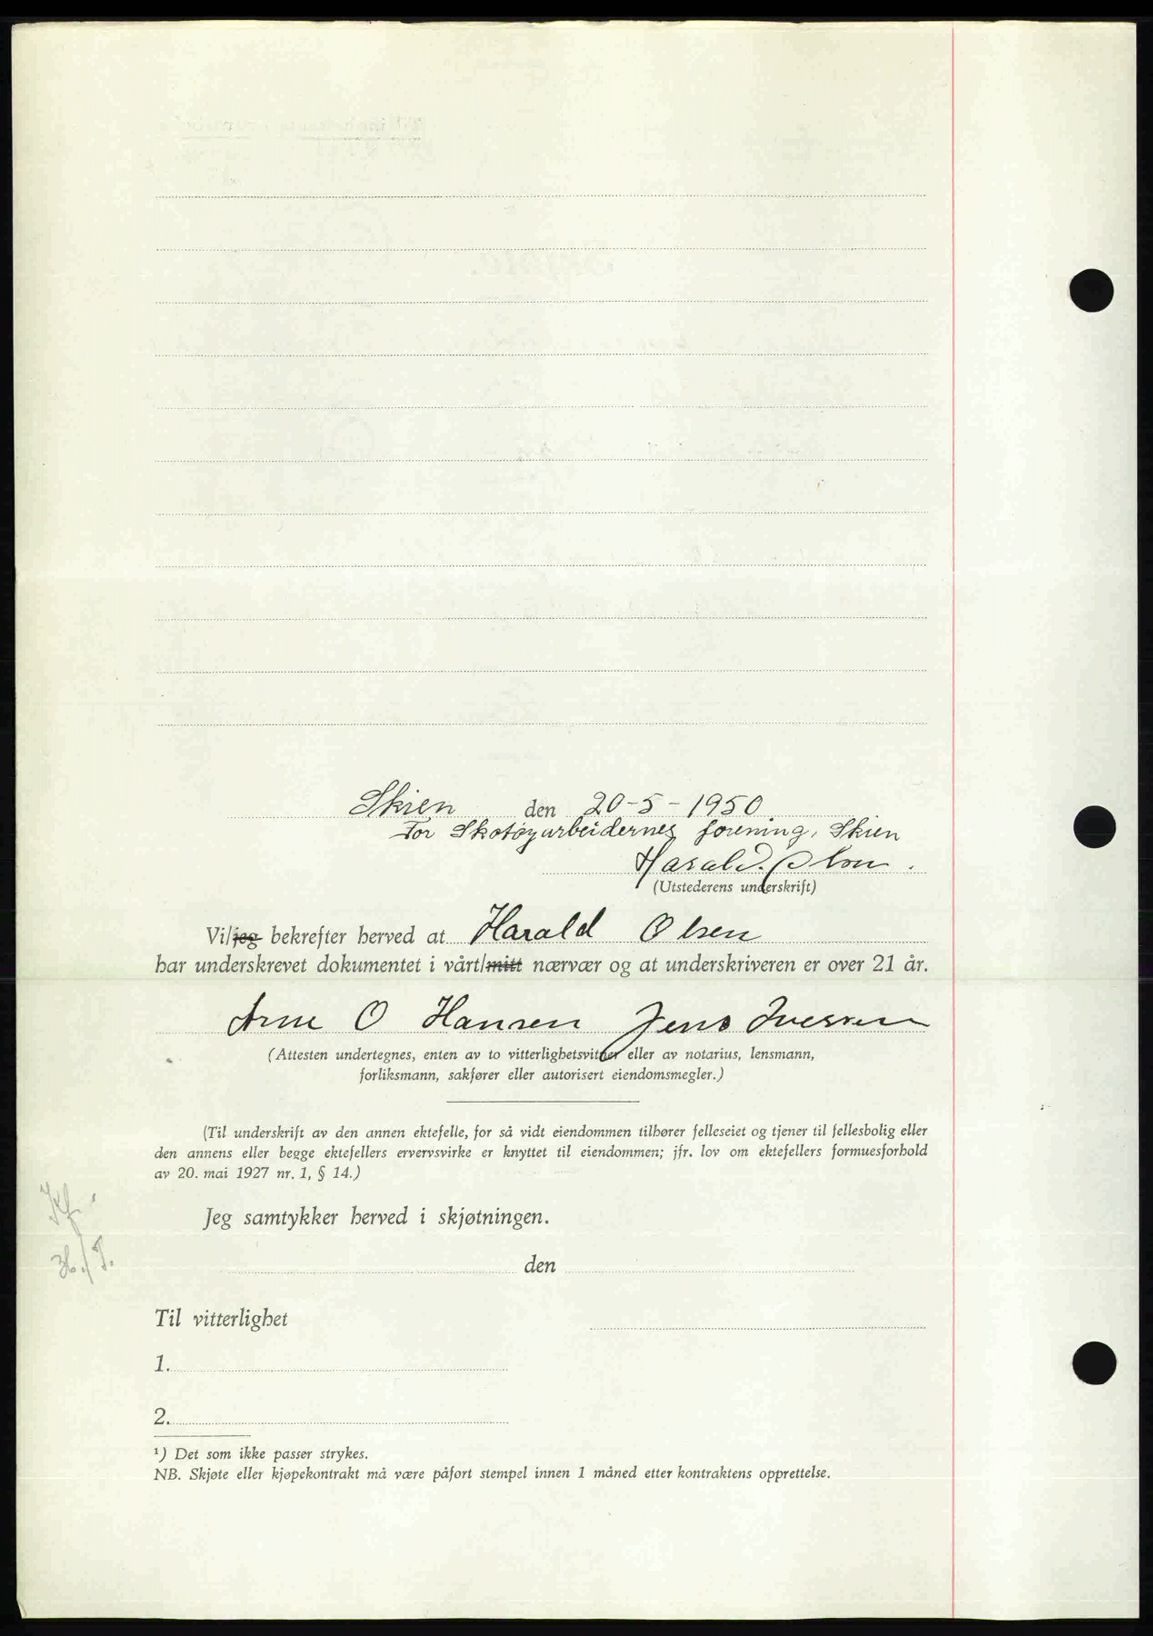 Skien den 20-5-1950
For Skotøyarbeidernes forening, Skien
Harald Olsen.
(Utstederens underskrift)
Vi/jeg bekrefter herved at Harald Olsen
har underskrevet dokumentet i vårt/mitt nærvær og at underskriveren er over 21 år.
Arne O Hansen Jens Iversen
(Attesten undertegnes, enten av to vitterlighetsvitner eller av notarius, lensmann,
forliksmann, sakfører eller autorisert eiendomsmegler.)
(Til underskrift av den annen ektefelle, for så vidt eiendommen tilhører felleseiet og tjener til fellesbolig eller
den annens eller begge ektefellers ervervsvirke er knyttet til eiendommen; jfr. lov om ektefellers formuesforhold
av 20. mai 1927 nr. 1, § 14.)
Jeg samtykker herved i skjøtningen.
den
Til vitterlighet
1.
2.
¹) Det som ikke passer strykes.
NB. Skjøte eller kjøpekontrakt må være påført stempel innen 1 måned etter kontraktens opprettelse.